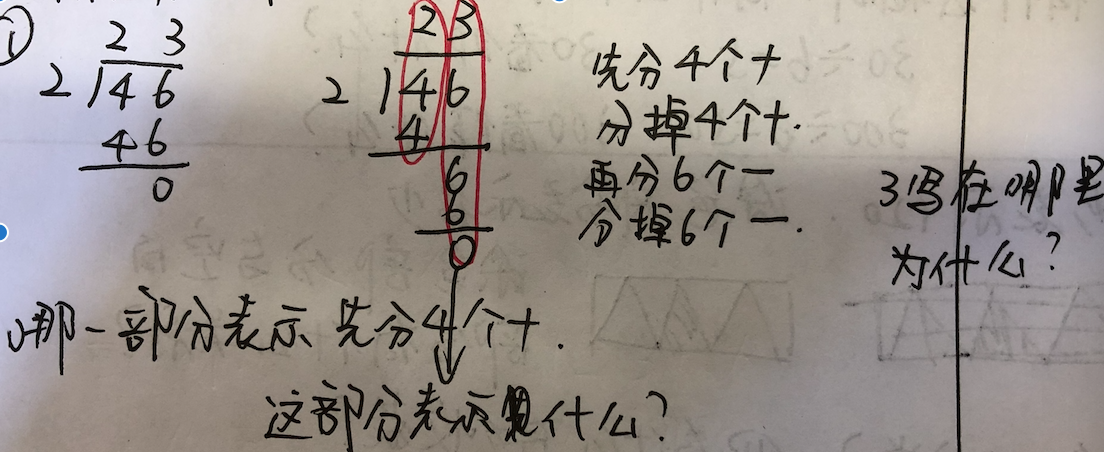 ①
2 3
2 46
4 6
0
2 3
2 46
4
6
6
0
先分4个十
分掉4个十.
再分6个一
分掉6个一.
3写在哪里
为什么?
哪一部分表示先分4个十.
这部分表示什么?